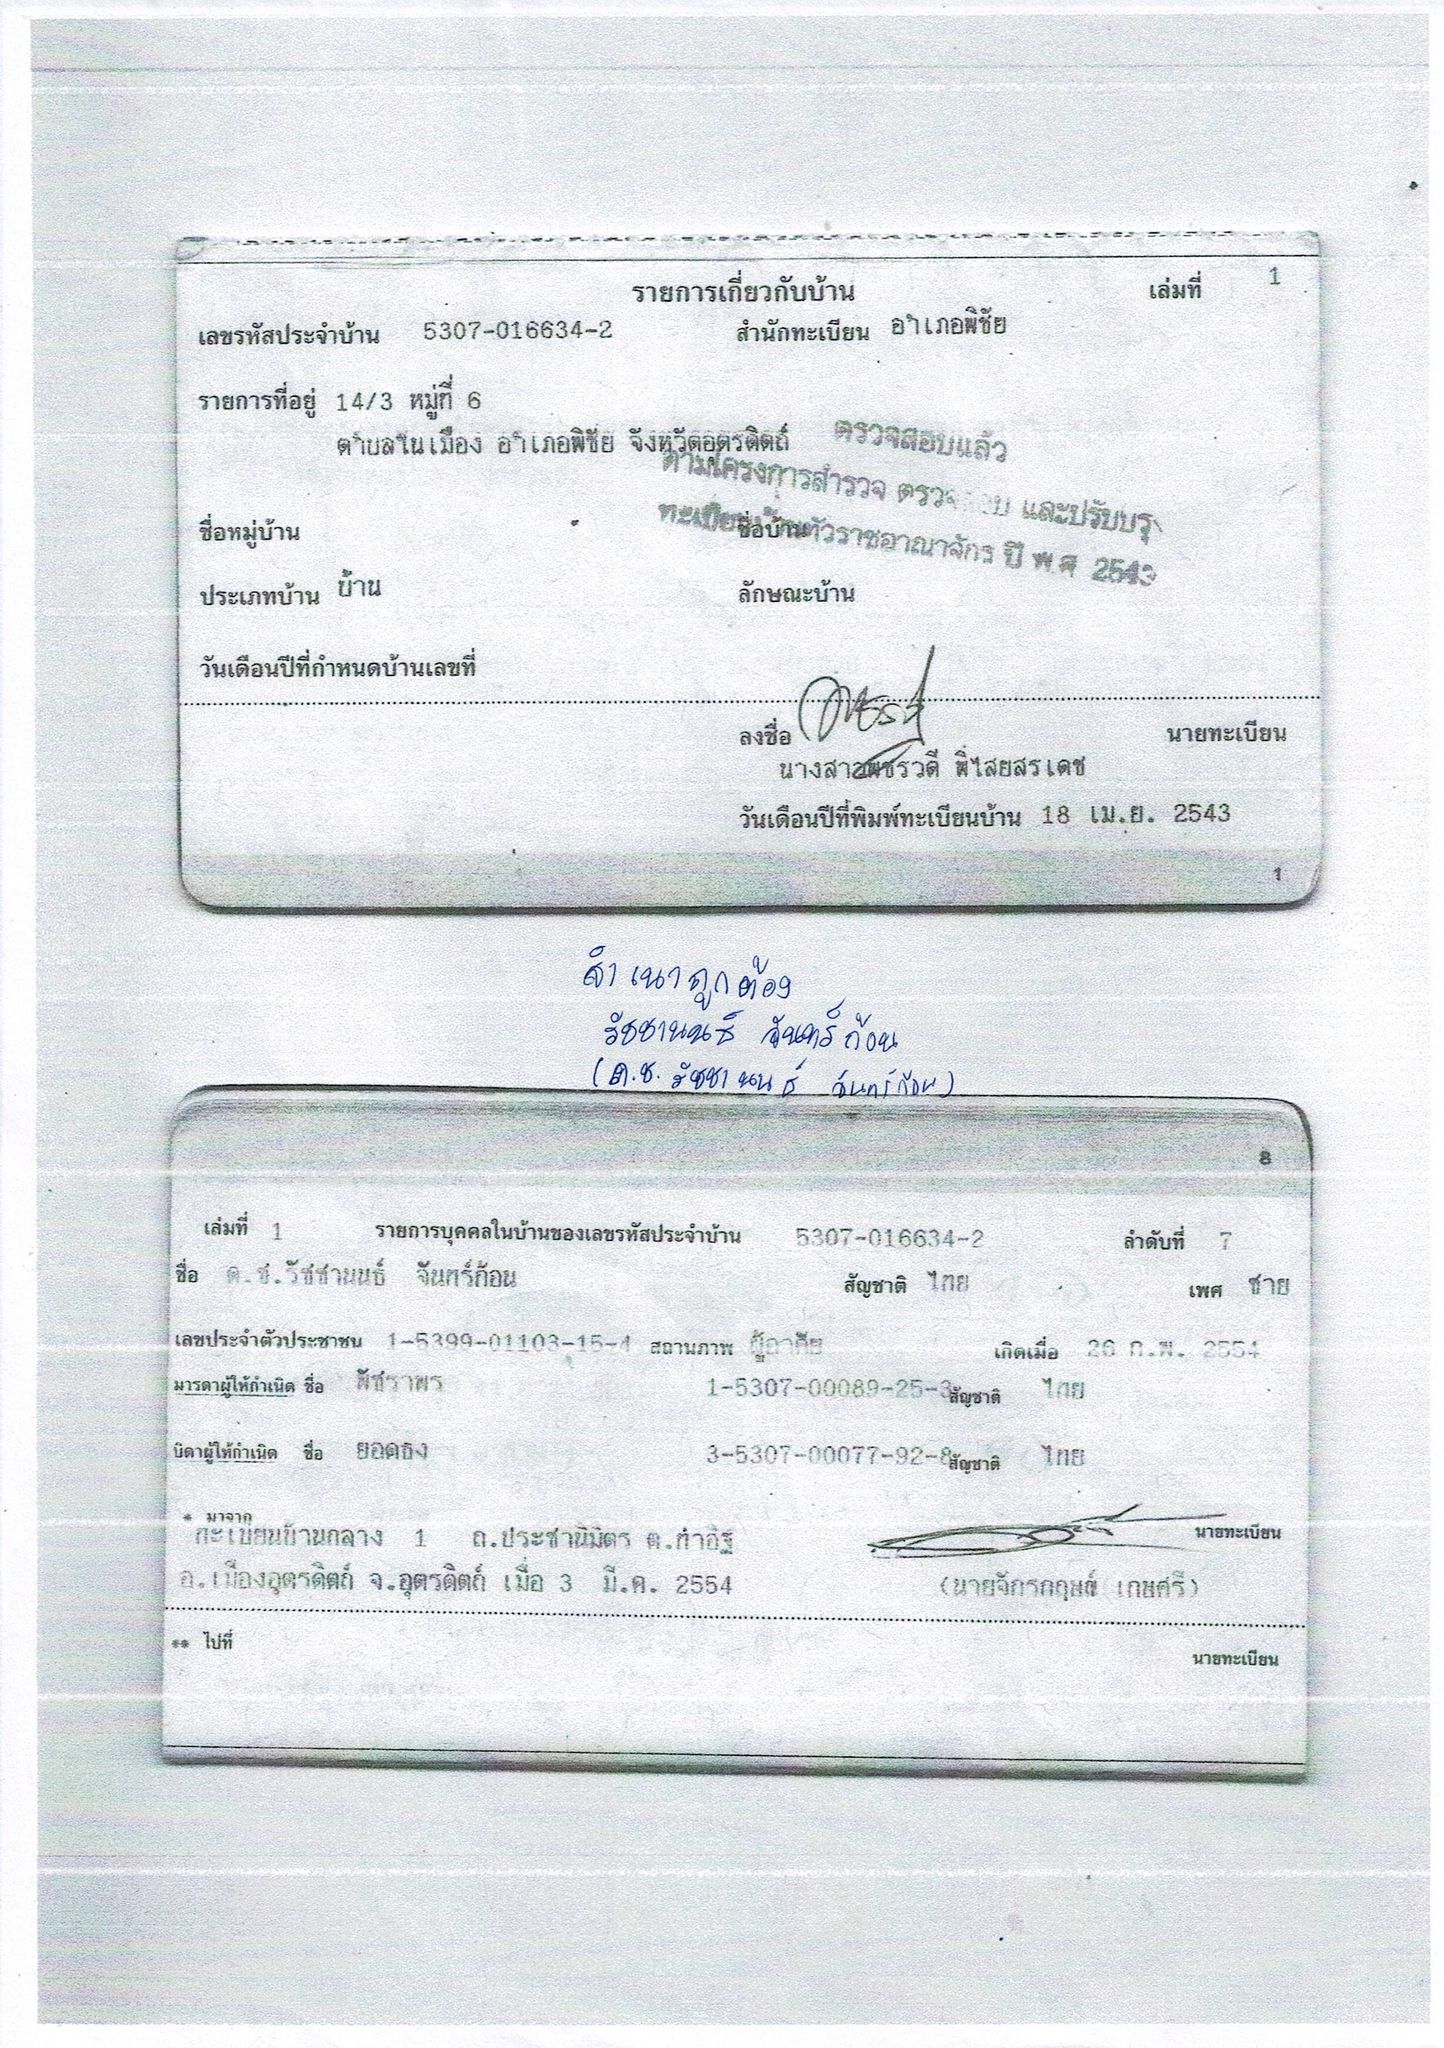 รายการเกี่ยวกับบ้าน เล่มที่ 1
เลขรหัสประจำบ้าน 5307-016634-2 สำนักทะเบียน อำเภอพิชัย
รายการที่อยู่ 14/3 หมู่ที่ 6
ตำบลในเมือง อำเภอพิชัย จังหวัดอุตรดิตถ์
ตรวจสอบแล้ว
ตามโครงการสำรวจ ตรวจสอบ และปรับปรุง
ทะเบียนบ้านทั่วราชอาณาจักร ปี พ.ศ 2543
ชื่อหมู่บ้าน ชื่อบ้าน
ประเภทบ้าน บ้าน ลักษณะบ้าน
วันเดือนปีที่กำหนดบ้านเลขที่
ลงชื่อ นายทะเบียน
นางสาวพชรวดี พิไสยสรเดช
วันเดือนปีที่พิมพ์ทะเบียนบ้าน 18 เม.ย. 2543
1
สำเนาถูกต้อง
รัชชานนธ์ จันทร์ก้อน
(ด.ช. รัชชานนธ์ จันทร์ก้อน)
8
เล่มที่ 1 รายการบุคคลในบ้านของเลขรหัสประจำบ้าน 5307-016634-2 ลำดับที่ 7
ชื่อ ด.ช.รัชชานนธ์ จันทร์ก้อน สัญชาติ ไทย เพศ ชาย
เลขประจำตัวประชาชน 1-5399-01103-15-4 สถานภาพ ผู้อาศัย เกิดเมื่อ 26 ก.พ. 2554
มารดาผู้ให้กำเนิด ชื่อ พัชราพร 1-5307-00089-25-3 สัญชาติ ไทย
บิดาผู้ให้กำเนิด ชื่อ ยอดธง 3-5307-00077-92-8 สัญชาติ ไทย
* มาจาก
ทะเบียนบ้านกลาง 1 ถ.ประชานิมิตร ต.ท่าอิฐ นายทะเบียน
อ.เมืองอุตรดิตถ์ จ.อุตรดิตถ์ เมื่อ 3 มี.ค. 2554 (นายจักรกฤษณ์ เกษศรี)
** ไปที่
นายทะเบียน